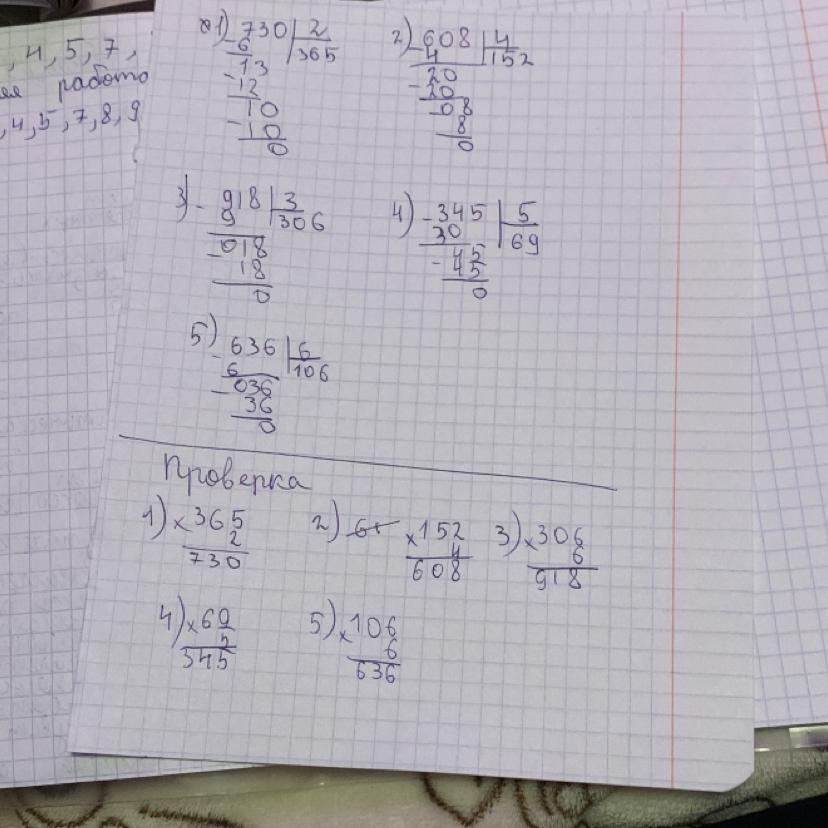 , 4, 5, 7,
работа
, 4, 5, 7, 8, 9
1) 730 | 2
- 6 | 365
13
- 12
10
- 10
0
2) 608 | 4
- 4 | 152
20
- 20
- 08
8
0
3) - 918 | 3
9 | 306
018
- 18
0
4) - 345 | 5
30 | 69
- 45
45
0
5) 636 | 6
- 6 | 106
- 036
36
0
Проверка
1) x 365
2
730
2) x 152
4
608
3) x 306
6
918
4) x 69
5
345
5) x 106
6
636